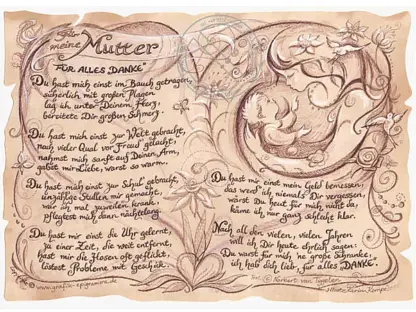 Für meine Mutter
FÜR ALLES „DANKE“
Du hast mich einst im Bauch getragen,
sicherlich mit großen Plagen,
lag ich unter Deinem Herz,
bereitete Dir großen Schmerz.
Du hast mich einst zur Welt gebracht,
nach vieler Qual vor Freud' gelacht,
nahmst mich sanft auf Deinen Arm,
gabst mir Liebe, warst so warm.
Du hast mich einst zur Schul' gebracht,
unzählige Stullen mir gemacht,
war ich mal zuweilen krank,
pflegtest mich dann nächtelang.
Du hast mir einst die Uhr gelernt,
zu einer Zeit, die weit entfernt,
hast mir die Hosen oft geflickt,
löstest Probleme mit Geschick.
Du hast mir einst mein Geld bemessen,
das werd' ich niemals Dir vergessen,
wärst Du heut' für mich nicht da,
käme ich nur ganz schlecht klar.
Nach all den vielen, vielen Jahren
will ich Dir heute ehrlich sagen:
Du warst für mich 'ne große Schranke,
ich hab' dich lieb, für alles „DANKE“.
© Norbert van Tiggelen
© www.grafik-epigramme.de